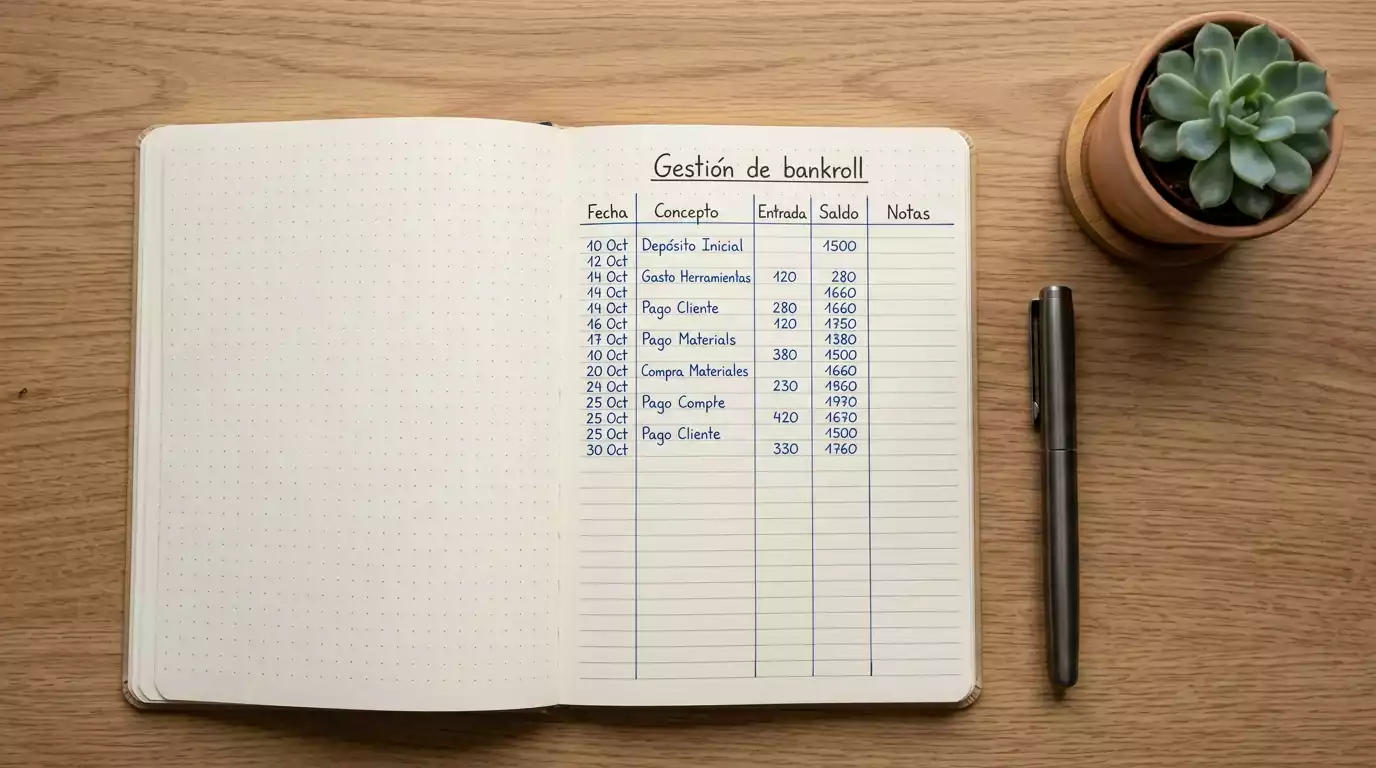 Gestión de bankroll
Fecha Concepto Entrada Saldo Notas
10 Oct Depósito Inicial 1500
12 Oct
14 Oct Gasto Herramientas 120 280
14 Oct 1660
14 Oct Pago Cliente 280 1660
16 Oct 120 1750
17 Oct Pago Materials 1380
10 Oct 380 1500
20 Oct Compra Materiales 1660
24 Oct 230 1860
25 Oct Pago Compte 1970
25 Oct 420 1670
25 Oct Pago Cliente 1500
30 Oct 330 1760